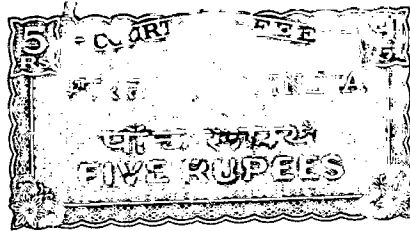 5 COURT FEE
INDIA
पाँच रुपये
FIVE RUPEES